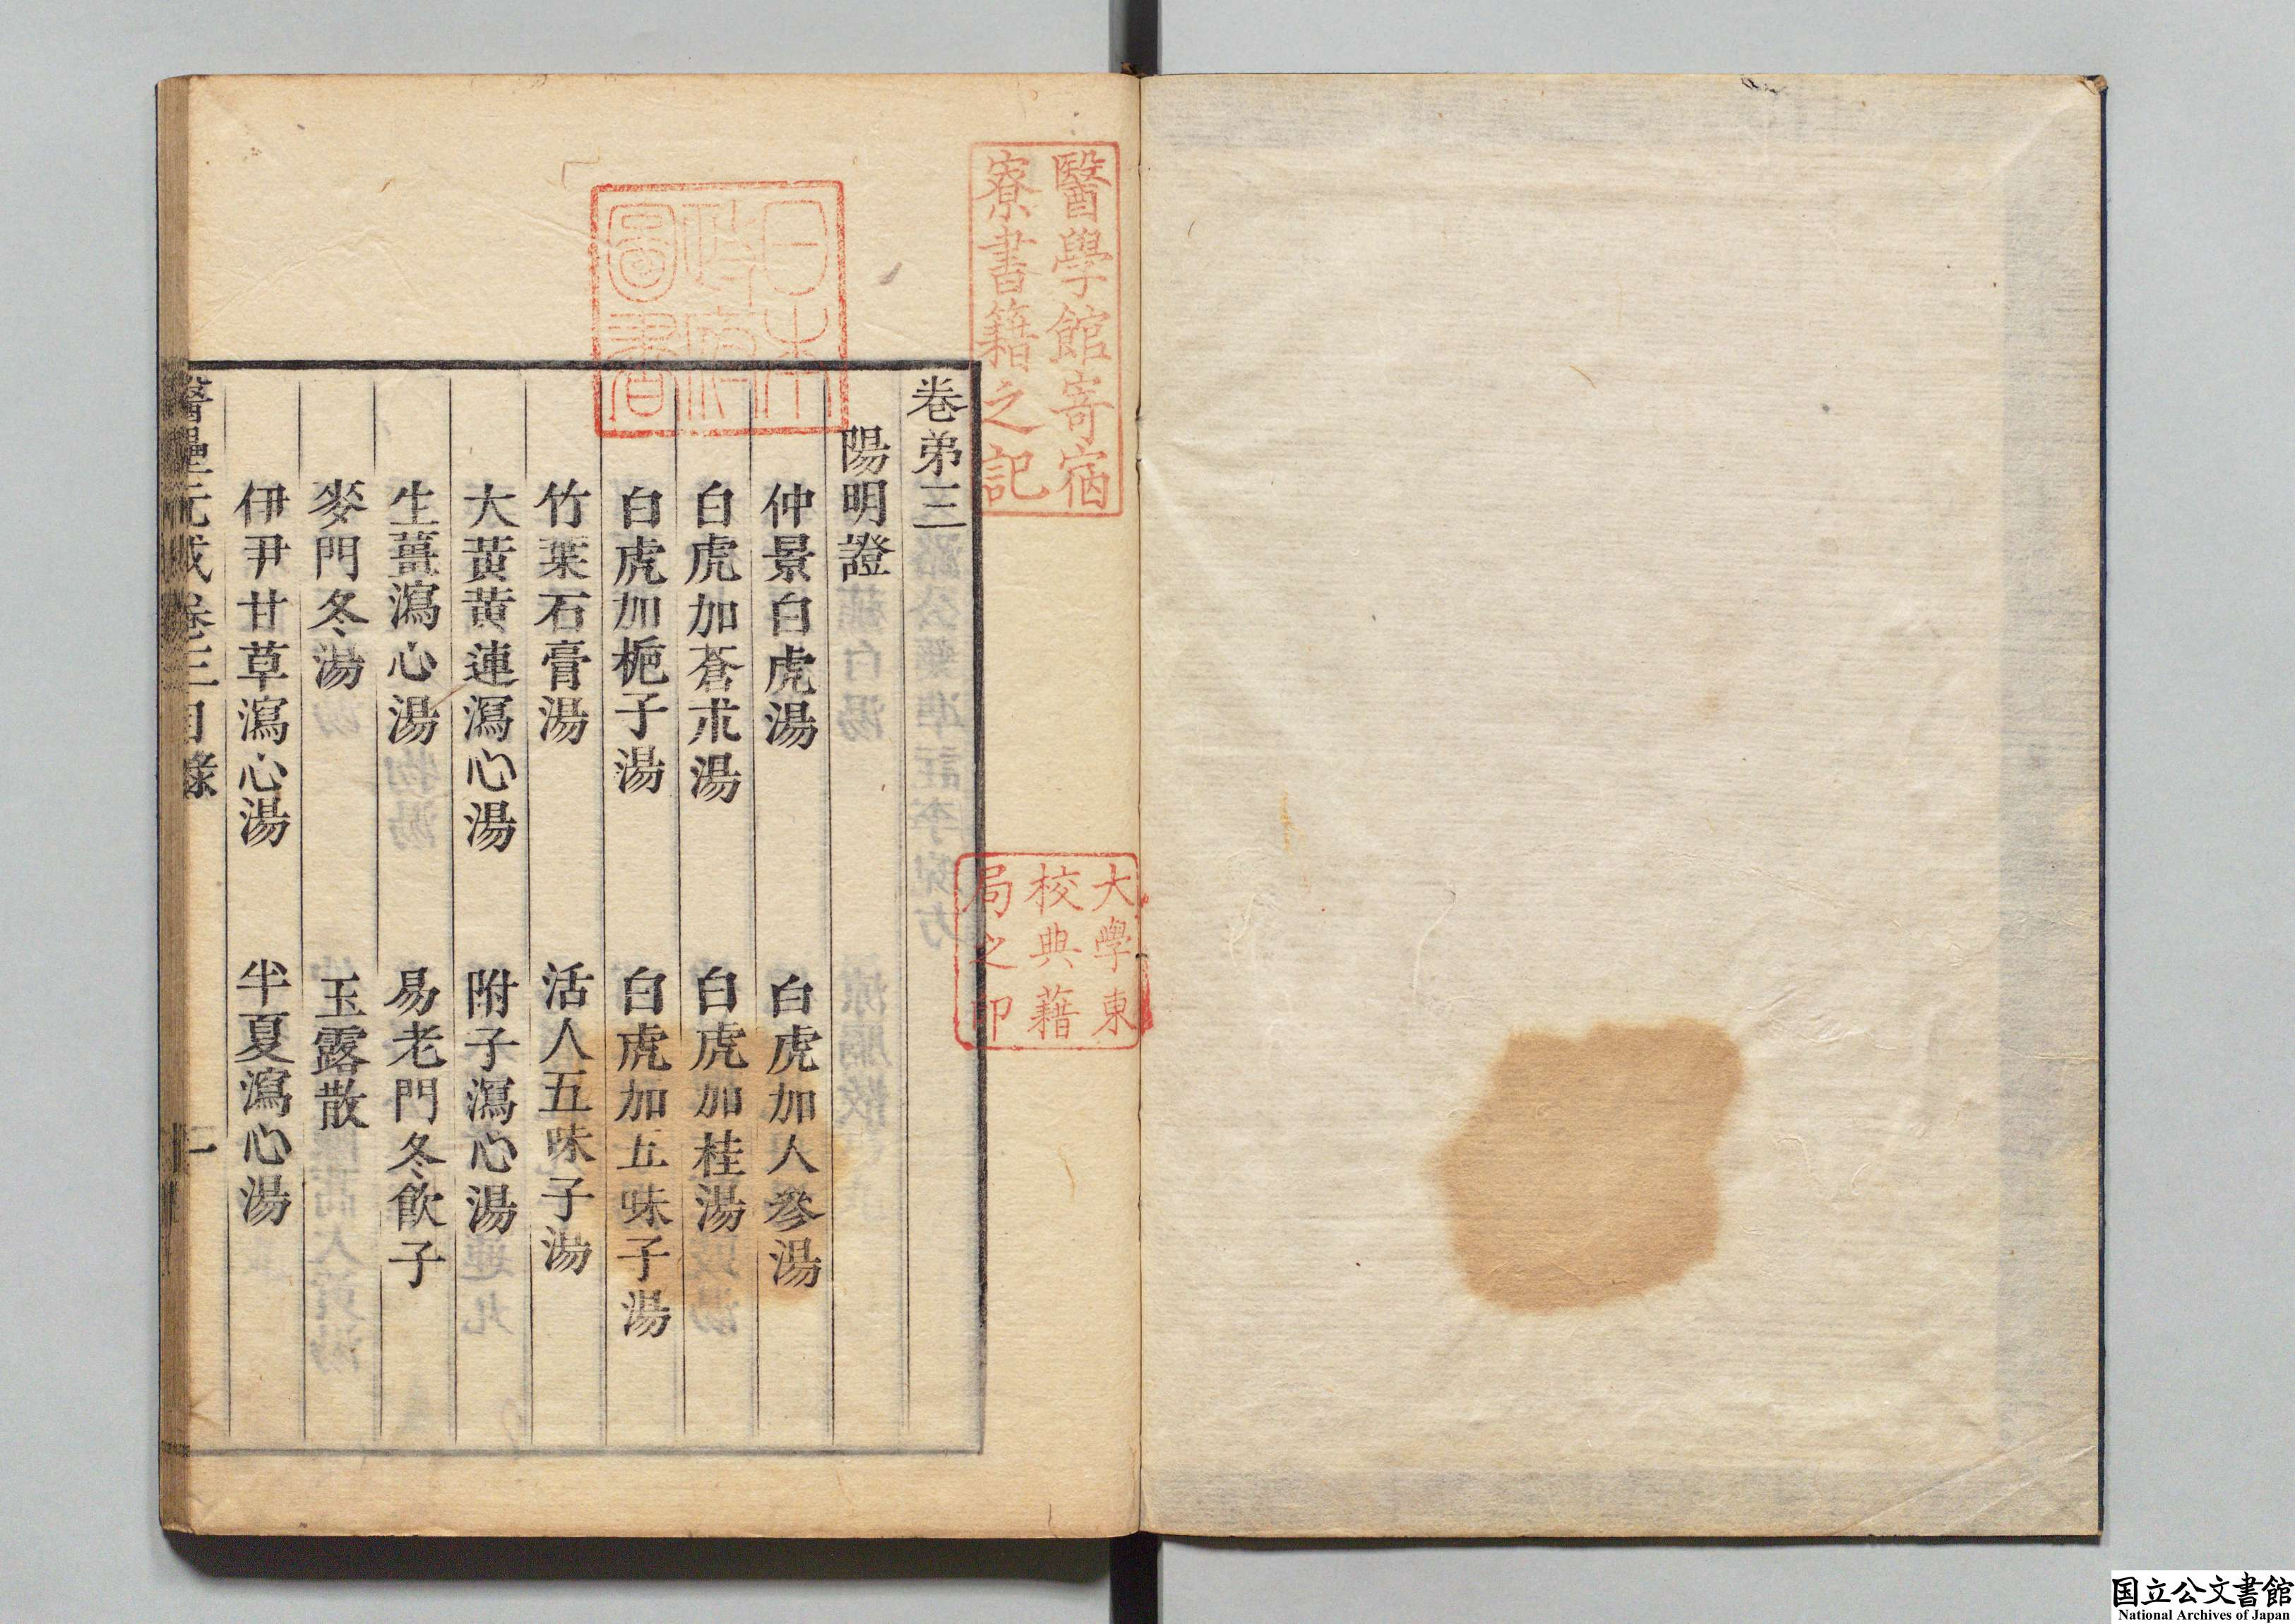 醫學館寄宿
寮書籍之記
日本
政府
圖書
大學東
校典籍
局之印
卷弟三
陽明證
仲景白虎湯 白虎加人參湯
白虎加蒼朮湯 白虎加桂湯
白虎加梔子湯 白虎加五味子湯
竹葉石膏湯 活人五味子湯
大黃黃連瀉心湯 附子瀉心湯
生薑瀉心湯 易老門冬飲子
麥門冬湯 玉露散
伊尹甘草瀉心湯 半夏瀉心湯
醫壘元戎卷三目錄 一
国立公文書館
National Archives of Japan